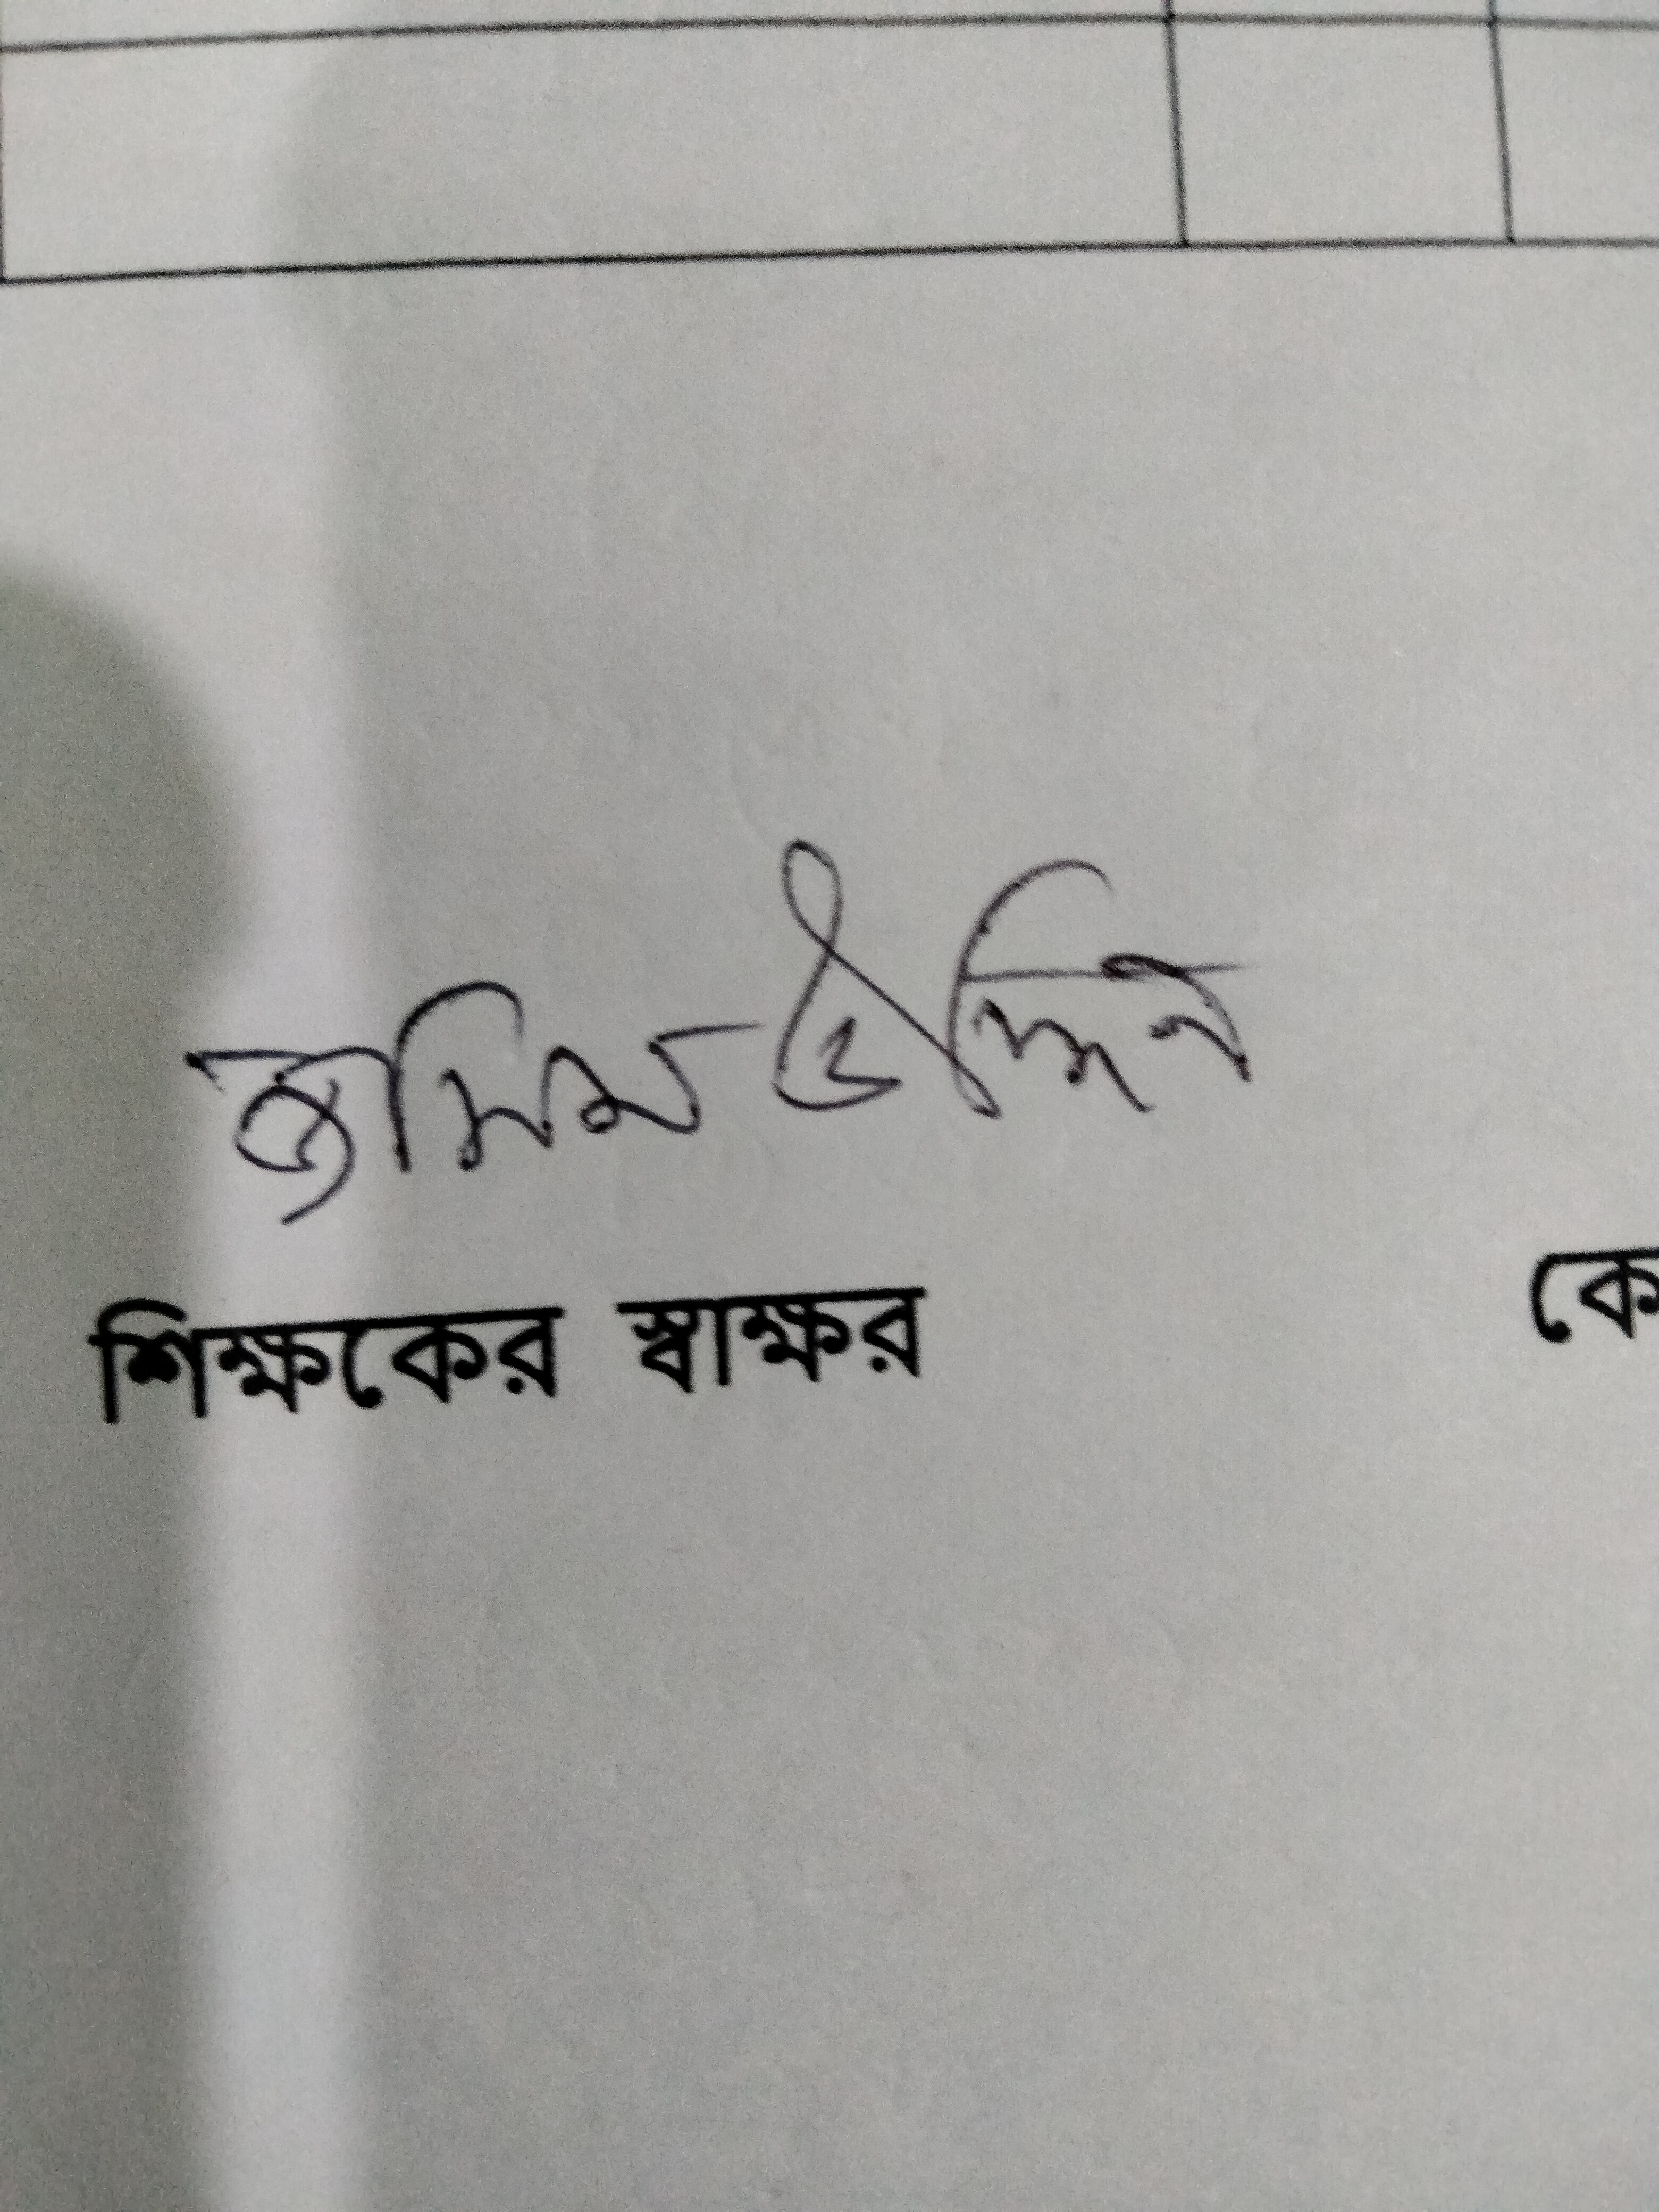 জসিম উদ্দিন
শিক্ষকের স্বাক্ষর
কে